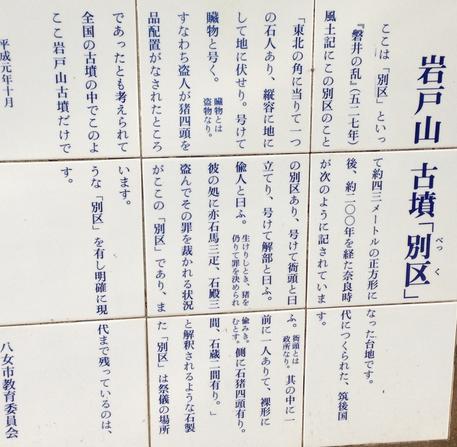 岩戸山古墳「別区」
べっく
ここは「別区」といって約四三メートルの正方形になった台地です。
『磐井の乱』(五二七年)後、約二〇〇年を経た奈良時代につくられた、筑後国
風土記にこの別区のことが次のように記されています。
「東北の角に当りて一つの別区あり、号けて衙頭と曰ふ。衙頭とは政所なり。其の中に一
の石人あり、縦容に地に立てり、号けて解部と曰ふ。前に一人ありて、裸形に
して地に伏せり。号けて偸人と曰ふ。生けりしとき、猪を偸みき。仍りて罪を決められむとす。側に石猪四頭有り。
臓物と号く。臓物とは盗物なり。彼の処に亦石馬三疋、石殿三間、石蔵二間有り。」
すなわち盗人が猪四頭を盗んでその罪を裁かれる状況と解釈されるような石製
品配置がなされたところがここの「別区」であり、また「別区」は祭儀の場所
であったとも考えられています。
全国の古墳の中でこのような「別区」を有し明確に現代まで残っているのは、
ここ岩戸山古墳だけです。
平成元年十月 八女市教育委員会